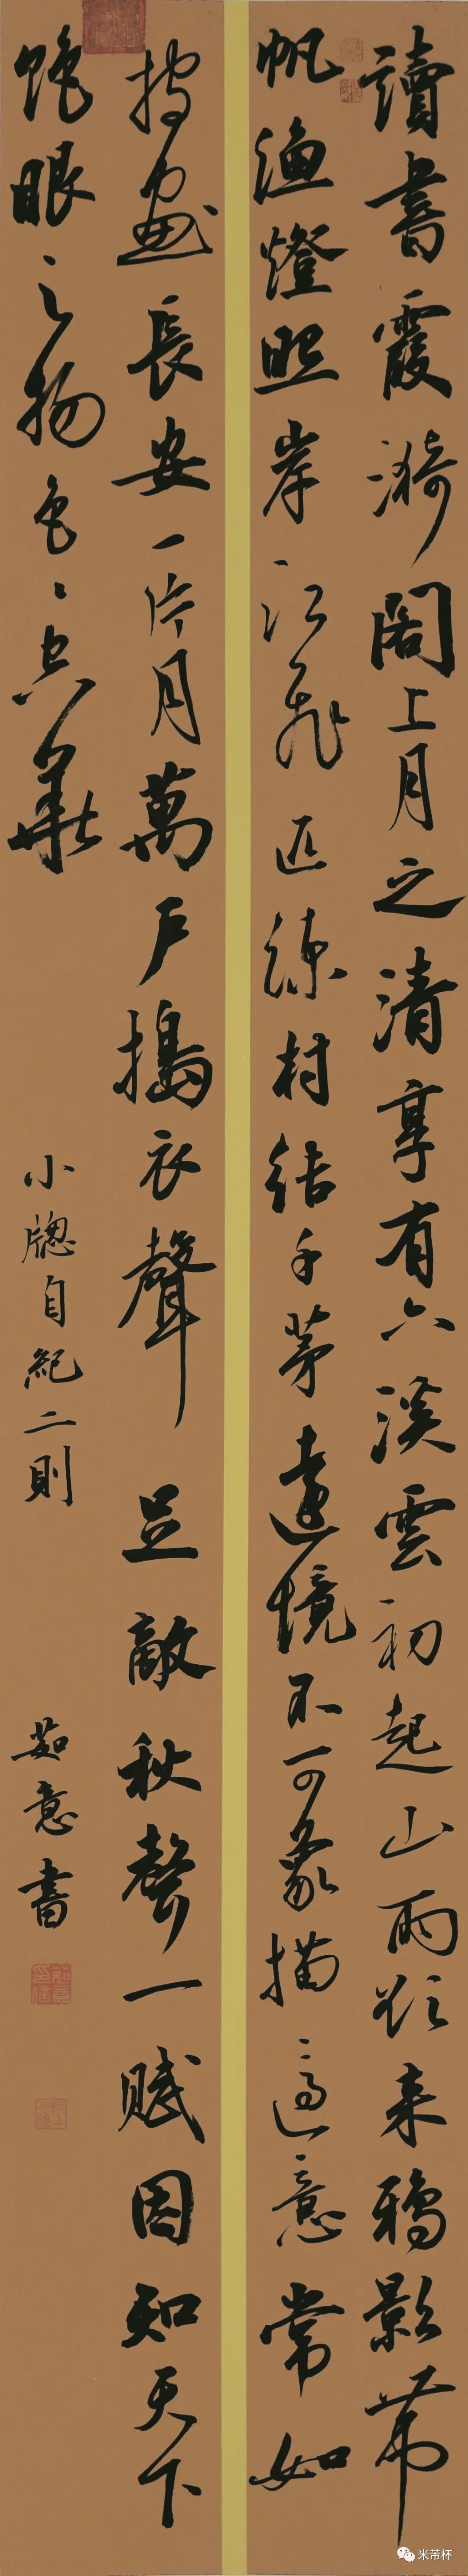 讀書霞漪閣上月之清享有六溪雲初起山雨欲来鴉影帶
帆漁燈照岸江飛匹練村結千茅遠境不可象描適意常如
披畫長安一片月萬戶搗衣聲足敵秋聲一賦因知天下
飽眼之物色〻空華
小牕自紀二則
茹意書
米芾杯